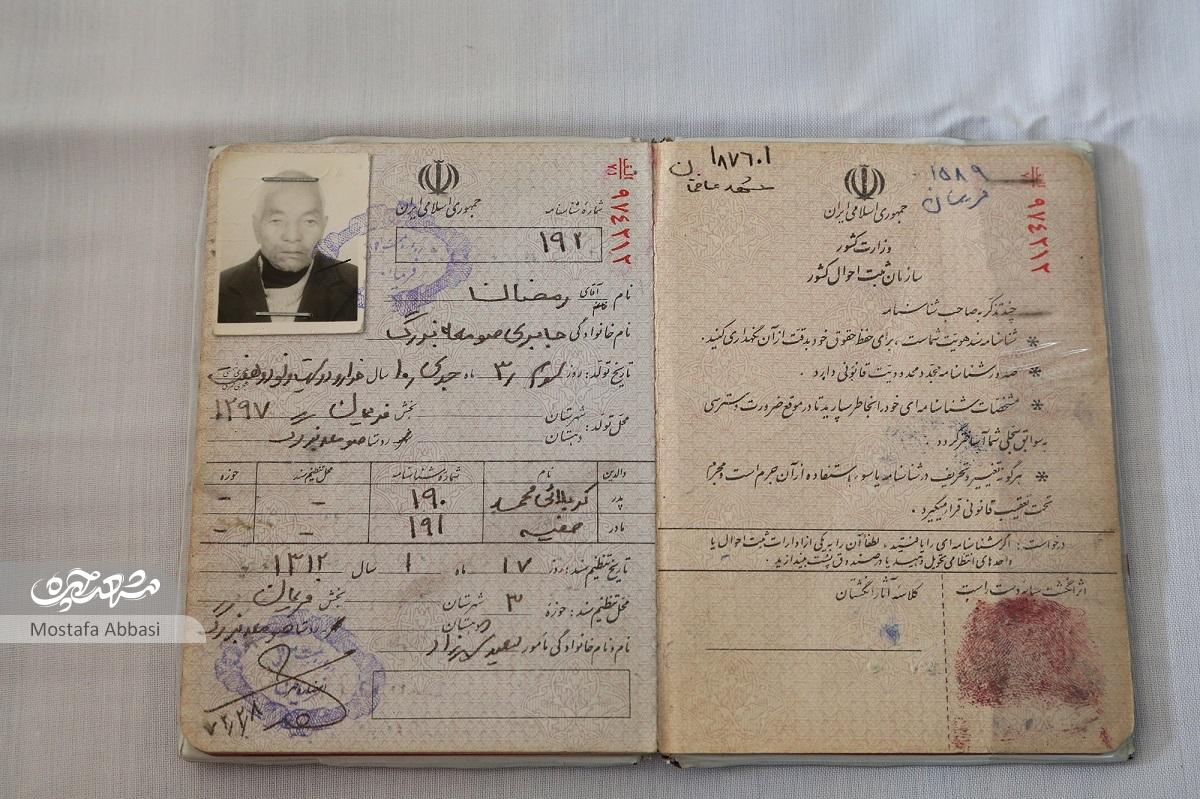 ۱۸۷۶۰۱
۱۵۸۹
فریمان
الف
۷۱
۹۷۴۲۱۲
جمهوری اسلامی ایران
وزارت کشور
سازمان ثبت احوال کشور
چند تذکر به صاحب شناسنامه
* شناسنامه سند هویت شماست ، برای حفظ حقوق خود بدقت از آن نگهداری کنید .
* صدور شناسنامه مجدد محدودیت قانونی دارد .
* مشخصات شناسنامه ای خود را بخاطر بسپارید تا در موقع ضرورت دسترسی
به سوابق سجلی شما آسانتر گردد .
* هرگونه تغییر و تحریف در شناسنامه یا سوء استفاده از آن جرم است و مجرم
تحت تعقیب قانونی قرار میگیرد .
درخواست : اگر شناسنامه ای را یافتید ، لطفاً آن را به یکی از ادارات ثبت احوال یا
واحدهای انتظامی تحویل دهید یا در صندوق پست بیندازید .
اثر انگشت سبابه دست راست
کلاسه آثار انگشتان
الف
۷۱
۹۷۴۲۱۲
جمهوری اسلامی ایران
شمارهٔ شناسنامه
۱۹۲
نام آقای خانم رمضان
نام خانوادگی جابری صومعه بزرگ
تاریخ تولد : روز سوم ۳ ماه جدی ۱۰ سال هزار و دویست و نود و هفت
۱۲۹۷
محل تولد : شهرستان بخش فریمان
دهستان روستا صومعه بزرگ
والدین نام شمارهٔ شناسنامه محل تنظیم سند حوزه
پدر کربلائی محمد ۱۹۰ - -
مادر صفیه ۱۹۱ - -
تاریخ تنظیم سند : روز ۱۷ ماه ۱۰ سال ۱۳۱۲
محل تنظیم سند : حوزه ۳ شهرستان بخش فریمان
دهستان روستا صومعه بزرگ
نام و نام خانوادگی مأمور
شهرآرا
Mostafa Abbasi